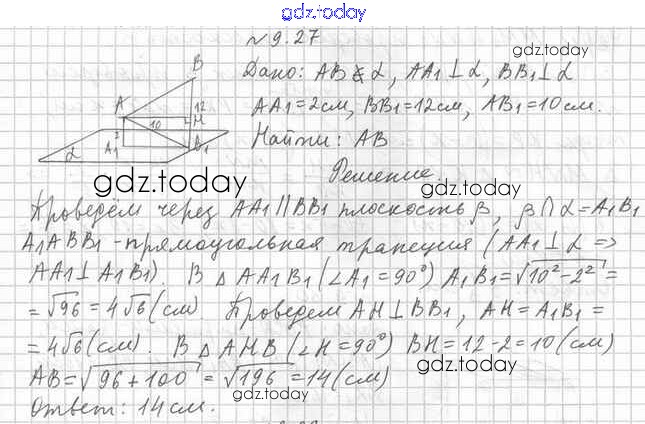 gdz.today
№ 9.27
gdz.today
Дано: AB ⊄ α, AA1 ⊥ α, BB1 ⊥ α
AA1 = 2см, BB1 = 12см, AB1 = 10см.
Найти: AB
Решение.
B
A
12
10
H
2
A1
B1
α
gdz.today
gdz.today
Проведём через AA1 || BB1 плоскость β, β ∩ α = A1B1
A1ABB1 - прямоугольная трапеция (AA1 ⊥ α =>
AA1 ⊥ A1B1). В △ AA1B1 (∠A1 = 90°) A1B1 = √10² - 2² =
= √96 = 4√6 (см). Проведем AH ⊥ BB1, AH = A1B1 =
= 4√6 (см). В △ AHB (∠H = 90°) BH = 12 - 2 = 10 (см)
AB = √96 + 100 = √196 = 14 (см)
Ответ: 14 см.
gdz.today
gdz.today